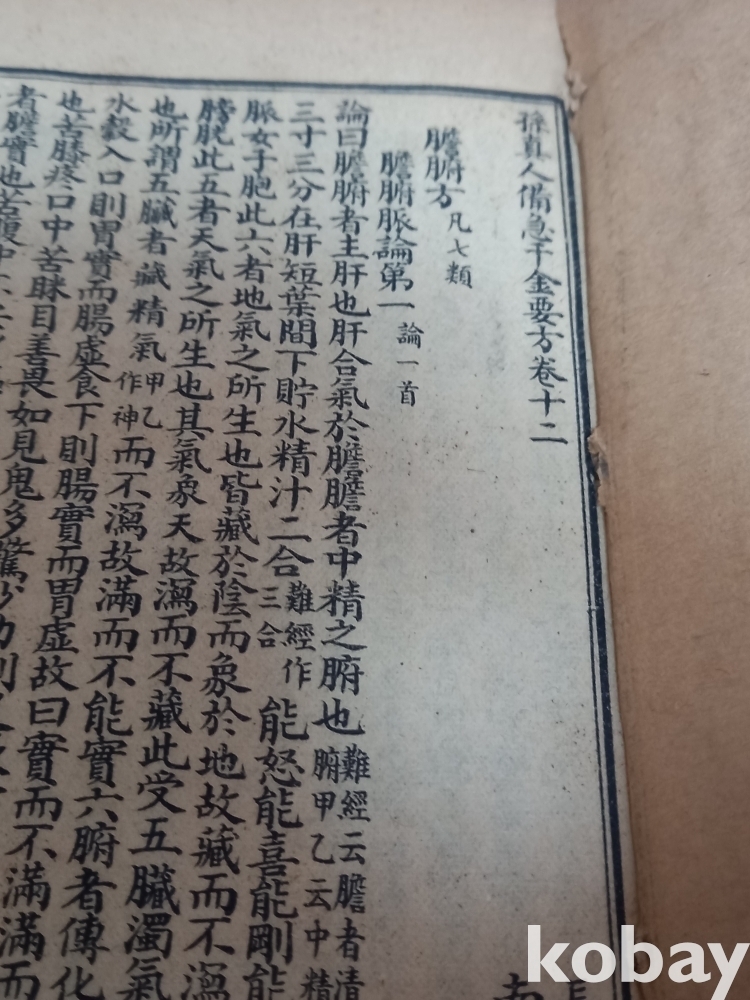 孫真人備急千金要方卷十二
膽腑方 凡七類
膽腑脈論第一 論一首
論曰膽腑者主肝也肝合氣於膽膽者中精之腑也 難經云膽者清
腑甲乙云中精
三寸三分在肝短葉間下貯水精汁二合 難經作
三合 能怒能喜能剛能
脈女子胞此六者地氣之所生也皆藏於陰而象於地故藏而不瀉
膀胱此五者天氣之所生也其氣象天故瀉而不藏此受五臟濁氣
也所謂五臟者藏精氣 甲乙
作神 而不瀉故滿而不能實六腑者傳化
水穀入口則胃實而腸虛食下則腸實而胃虛故曰實而不滿滿而
也苦膝疼口中苦眯目善畏如見鬼多驚少力
者膽實也苦腹中
kobay